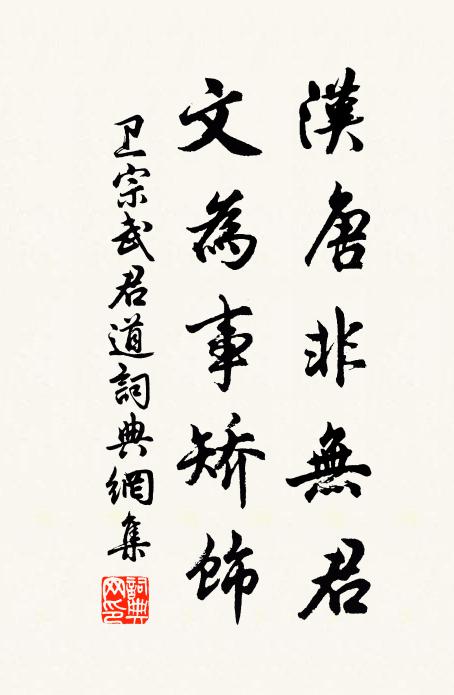 漢唐非無君
文為事矯飾
卫宗武君道詞典網集
詞典網印